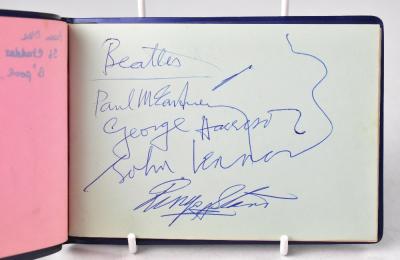 Beatles
Paul McCartney
George Harrison
John Lennon
Ringo Starr